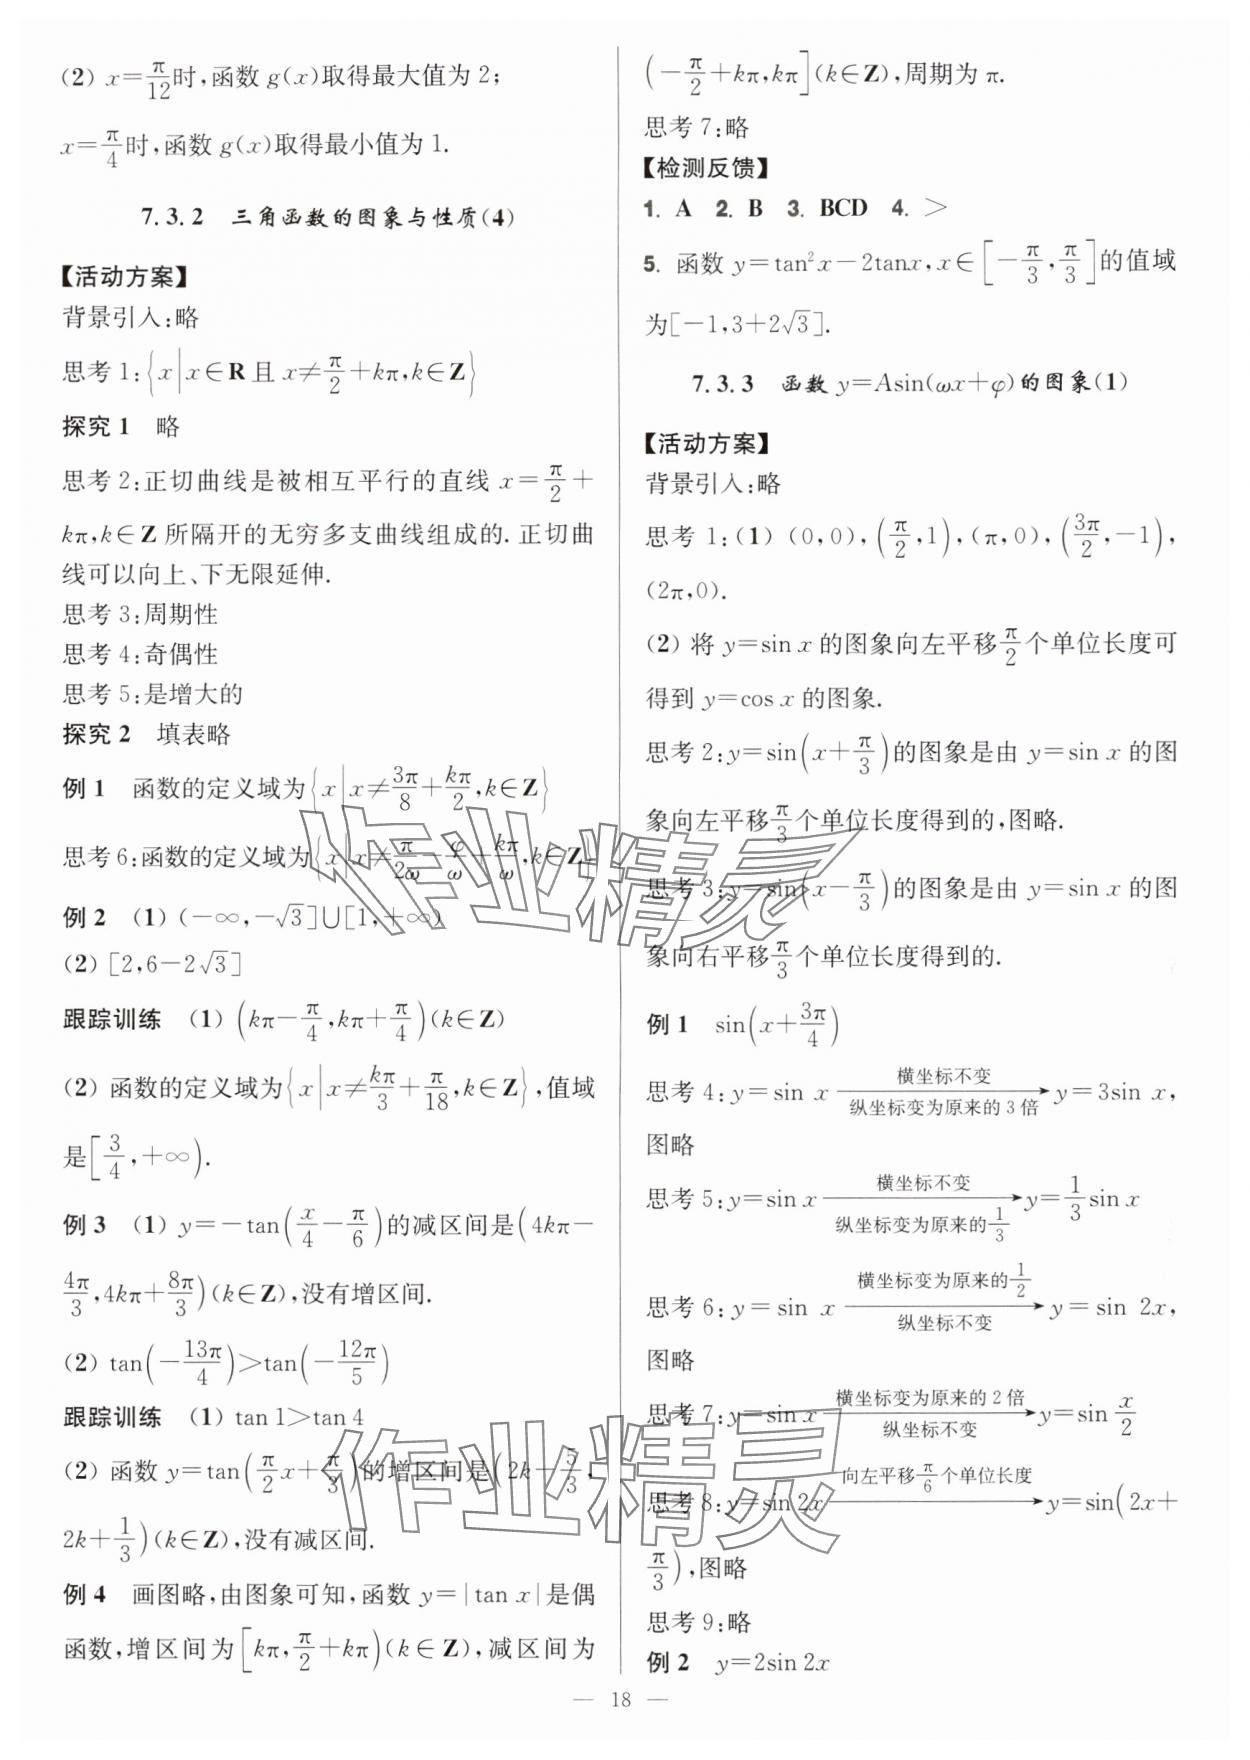 (2) x=π/12时,函数 g(x)取得最大值为 2;
x=π/4时,函数 g(x)取得最小值为 1.
7.3.2 三角函数的图象与性质(4)
【活动方案】
背景引入:略
思考 1:{x|x∈R 且 x≠π/2+kπ,k∈Z}
探究 1 略
思考 2:正切曲线是被相互平行的直线 x=π/2+
kπ,k∈Z 所隔开的无穷多支曲线组成的. 正切曲
线可以向上、下无限延伸.
思考 3:周期性
思考 4:奇偶性
思考 5:是增大的
探究 2 填表略
例 1 函数的定义域为{x|x≠3π/8+kπ/2,k∈Z}
思考 6:函数的定义域为{x|x≠π/2ω-φ/ω+kπ/ω,k∈Z
例 2 (1) (-∞,-√3]∪[1,+∞)
(2) [2,6-2√3]
跟踪训练 (1) (kπ-π/4,kπ+π/4)(k∈Z)
(2) 函数的定义域为{x|x≠kπ/3+π/18,k∈Z},值域
是[3/4,+∞).
例 3 (1) y=-tan(x/4-π/6)的减区间是(4kπ-
4π/3,4kπ+8π/3)(k∈Z),没有增区间.
(2) tan(-13π/4)>tan(-12π/5)
跟踪训练 (1) tan 1>tan 4
(2) 函数 y=tan(π/2x+π/3)的增区间是(2k-5/3,
2k+1/3)(k∈Z),没有减区间.
例 4 画图略,由图象可知,函数 y=|tan x|是偶
函数,增区间为[kπ,π/2+kπ)(k∈Z),减区间为
(-π/2+kπ,kπ](k∈Z),周期为 π.
思考 7:略
【检测反馈】
1. A 2. B 3. BCD 4. >
5. 函数 y=tan²x-2tanx,x∈[-π/3,π/3]的值域
为[-1,3+2√3].
7.3.3 函数 y=Asin(ωx+φ)的图象(1)
【活动方案】
背景引入:略
思考 1:(1) (0,0),(π/2,1),(π,0),(3π/2,-1),
(2π,0).
(2) 将 y=sin x 的图象向左平移π/2个单位长度可
得到 y=cos x 的图象.
思考 2:y=sin(x+π/3)的图象是由 y=sin x 的图
象向左平移π/3个单位长度得到的,图略.
思考 3:y=sin(x-π/3)的图象是由 y=sin x 的图
象向右平移π/3个单位长度得到的.
例 1 sin(x+3π/4)
思考 4:y=sin x 横坐标不变 纵坐标变为原来的 3 倍→y=3sin x,
图略
思考 5:y=sin x 横坐标不变 纵坐标变为原来的1/3→y=1/3sin x
思考 6:y=sin x 横坐标变为原来的1/2 纵坐标不变→y=sin 2x,
图略
思考 7:y=sin x 横坐标变为原来的 2 倍 纵坐标不变→y=sin x/2
思考 8:y=sin 2x 向左平移π/6个单位长度→y=sin(2x+
π/3),图略
思考 9:略
例 2 y=2sin 2x
— 18 —
作业精灵
作业精灵